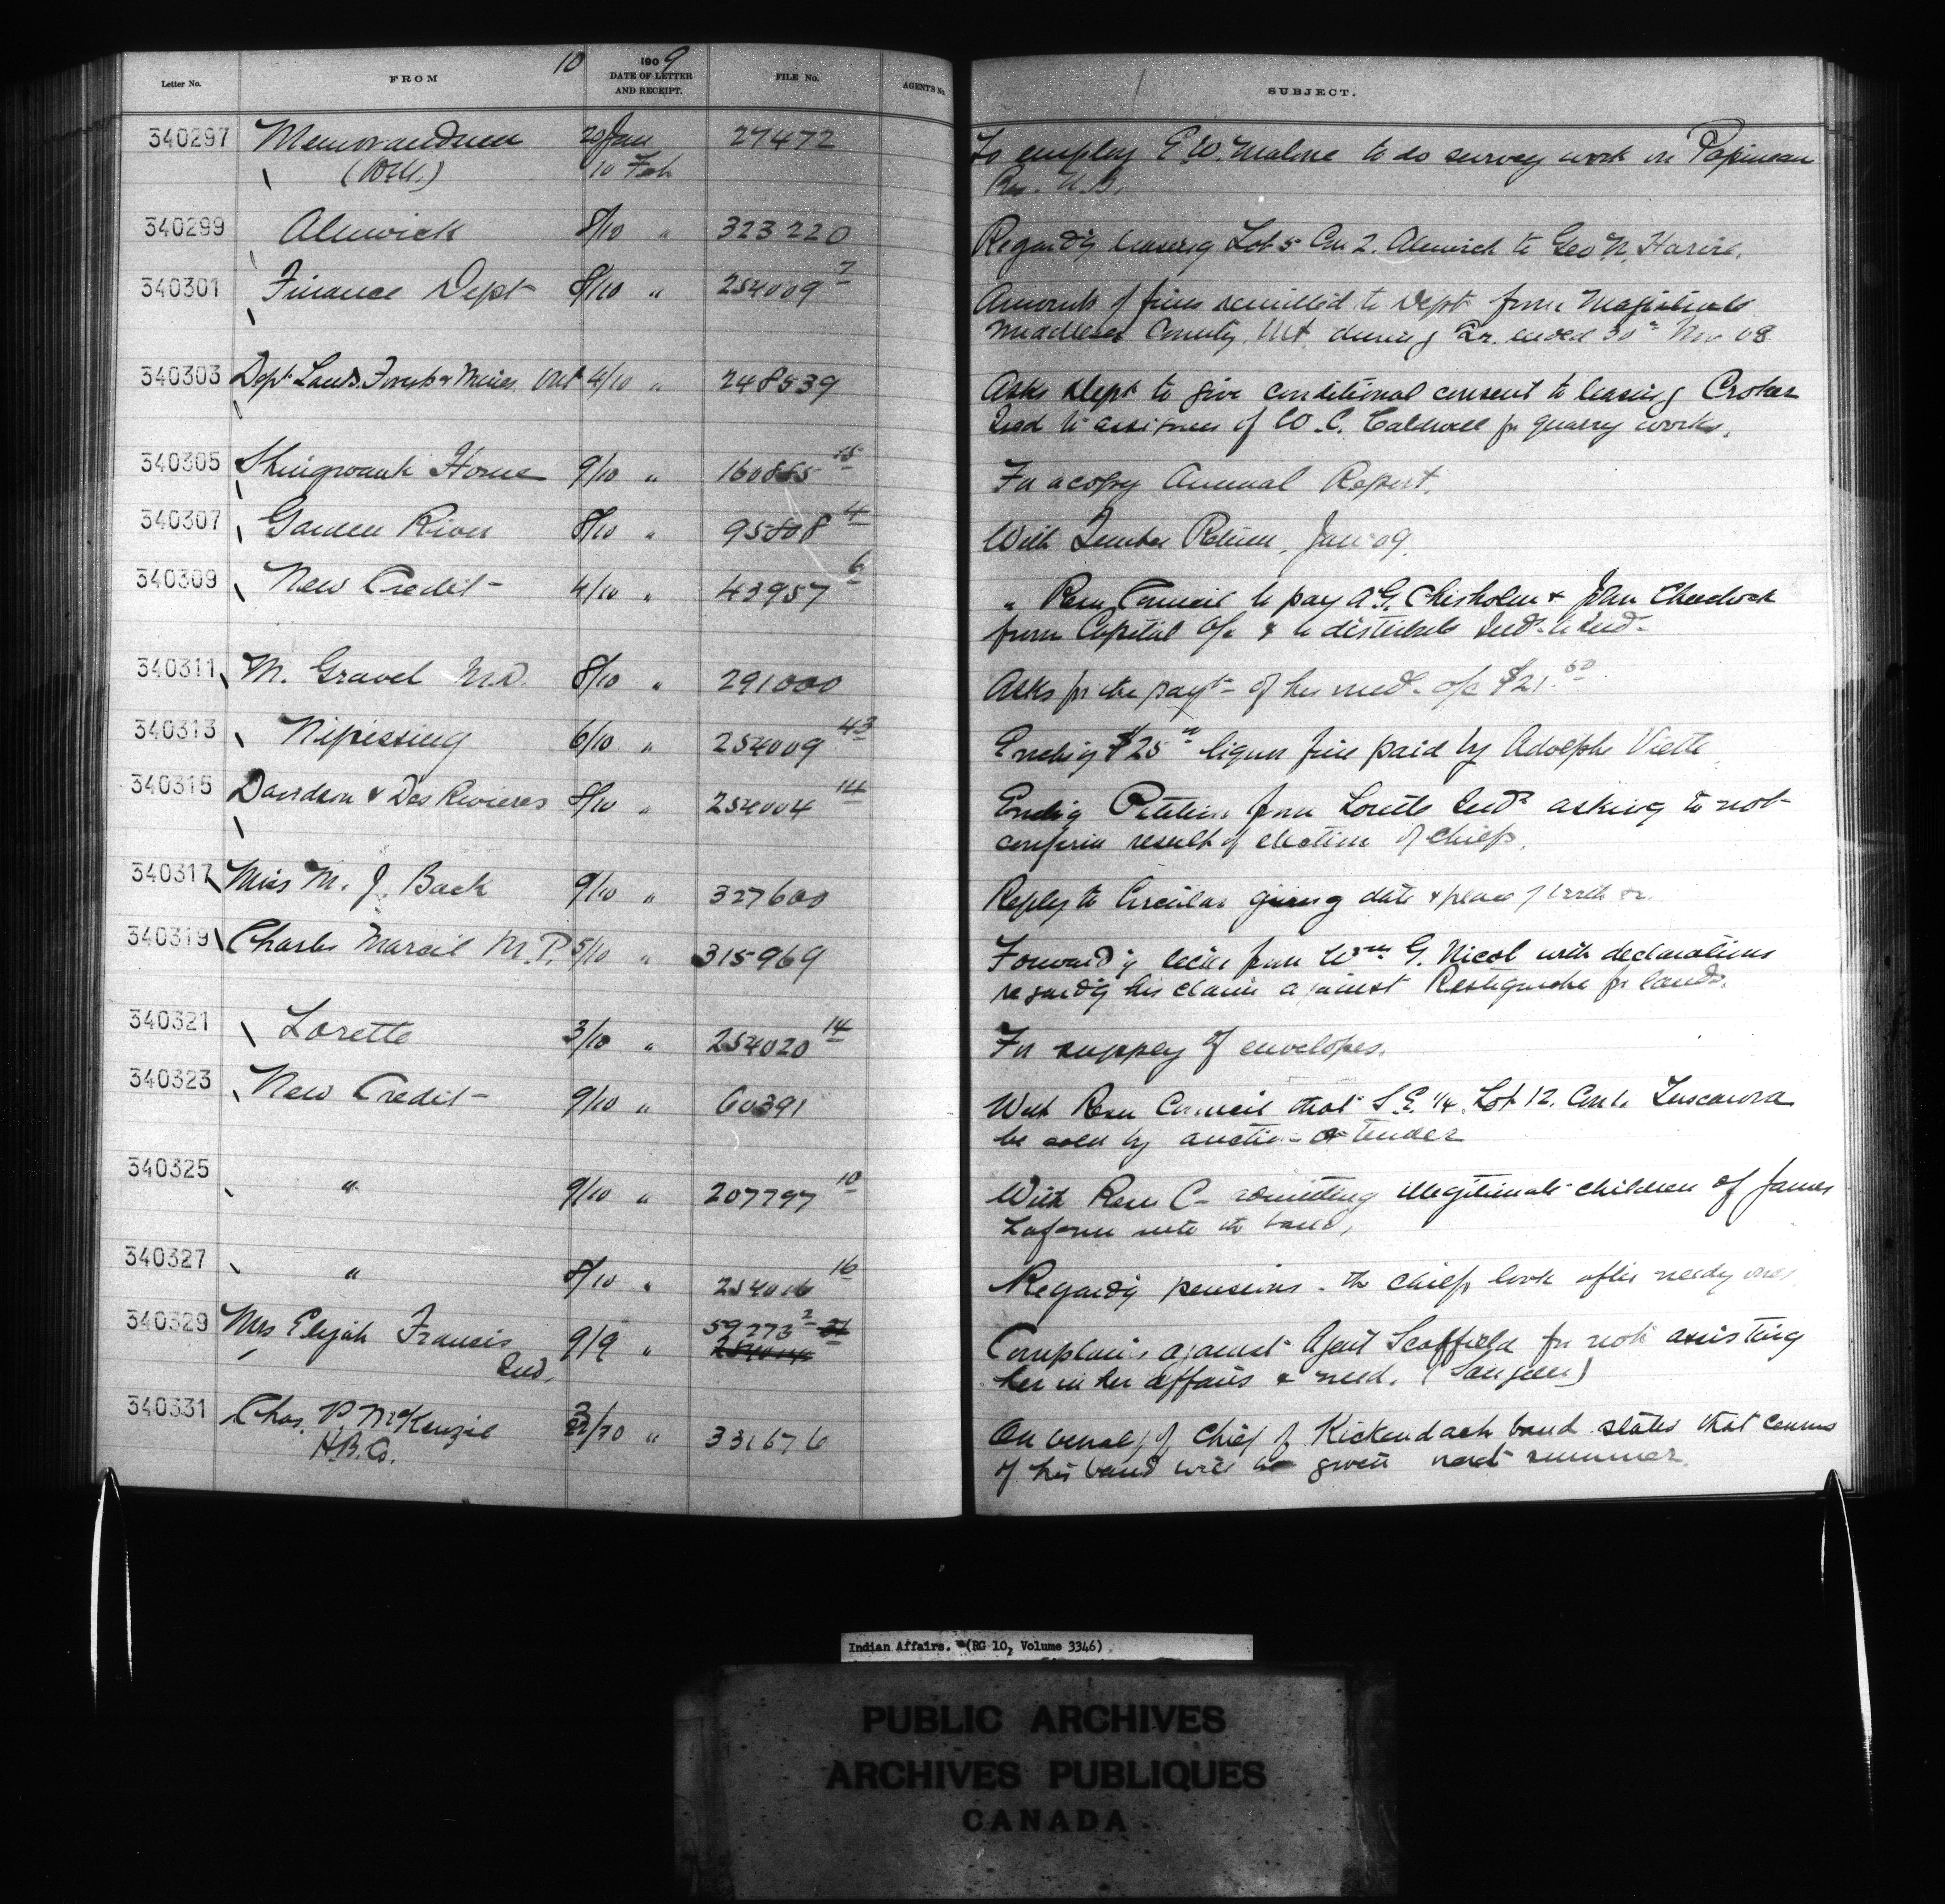 10 1909
Letter No. FROM DATE OF LETTER AND RECEIPT. FILE No. AGENT'S No. SUBJECT.
340297 Memorandum 29 Jan 27472 To employ E.W. Malone to do survey work on Papineau
10 Feb Res. N.B.
340299 Alnwick 8/10 " 323220 Regard'g leasing Lot 5 Con 2. Alnwick to Geo. N.
340301 Finance Dept 8/10 " 254009 7 Amounts of fines remitted to Dept from Magistrate
Middlesex County, Ont during Qr. ended 30th Nov 08
340303 Dept Lands, Forests & Mines Ont 4/10 " 248539 Asks Dept to give conditional consent to leasing Croker
Isd to assignees of W.C. Caldwell for quarry works.
340305 Shingwauk Home 9/10 " 160865 15 For a copy Annual Report.
340307 Garden River 8/10 " 95808 4 With Timber Return, Jan 09.
340309 New Credit 4/10 " 43957 6 " Resn Council to pay A.G. Chisholm & John Chadwick
from Capital a/c & to distribute
340311 M. Gravel M.D. 8/10 " 291000 Asks for the paymt of his med. a/c $21.50
340313 Nipissing 6/10 " 254009 43 Encl'g $25 liquor fine paid by Adolphe Viette
340315 Davidson & Des Rivieres 8/10 " 254004 14 Encl'g Petition from Lorette Inds asking to not
confirm result of election of chiefs.
340317 Miss M. J. Back 9/10 " 327600 Reply to Circular giving date & place of birth &c.
340319 Charles Marcil M.P. 5/10 " 315969 Forward'g letter from Wm G. Nicol with declarations
regard'g his claim against Restigouche for lands.
340321 Lorette 3/10 " 254020 14 For supply of envelopes.
340323 New Credit 9/10 " 60391 With Resn Council that S.E. 1/4 Lot 12. Con 1. Tuscarora
be sold by auction or tender
340325 " 9/10 " 207797 10 With Resn C- admitting illegitimate children of James
Laform into the band.
340327 " 8/10 " 254016 16 Regard'g pensions. the chiefs look after needy ones
340329 Mrs Elijah Francis 9/9 " 59273 2 Complains against Agent Scoffield for not assisting
Ind. her in her affairs & need. (Saugeen)
340331 Chas. P. McKenzie 3/10 " 331676 On behalf of Chief of Kickendach band states that census
H.B.Co. of his band will be given next summer.
Indian Affairs. (RG 10, Volume 3346)
PUBLIC ARCHIVES
ARCHIVES PUBLIQUES
CANADA